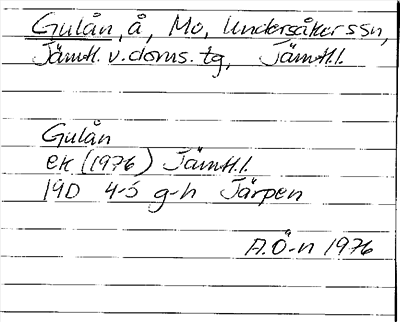 Gulån, å, Mo, Undersåker ssn,
Jämtl. v. doms. tg, Jämtl.l.
Gulån
ek (1976) Jämtl.l.
19D 4-5 g-h Järpen
A.Ö-n 1976